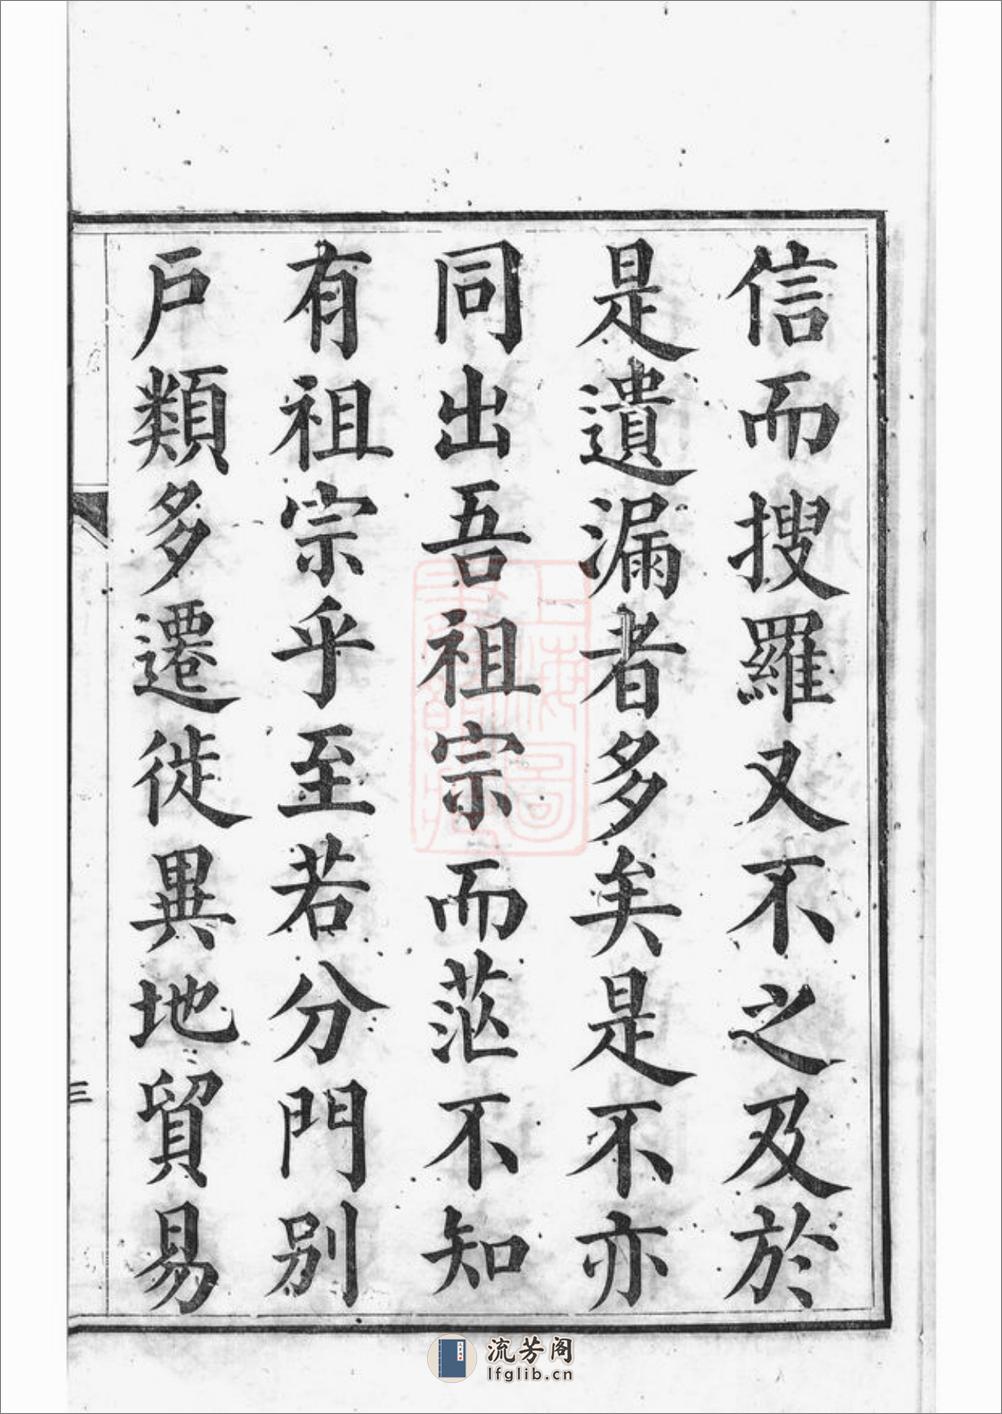 信而搜羅又不之及於
是遺漏者多矣是不亦
同出吾祖宗而茫不知
有祖宗乎至若分門別
戶類多遷徙異地貿易
三
上海圖
書館藏
流芳阁
lfglib.cn